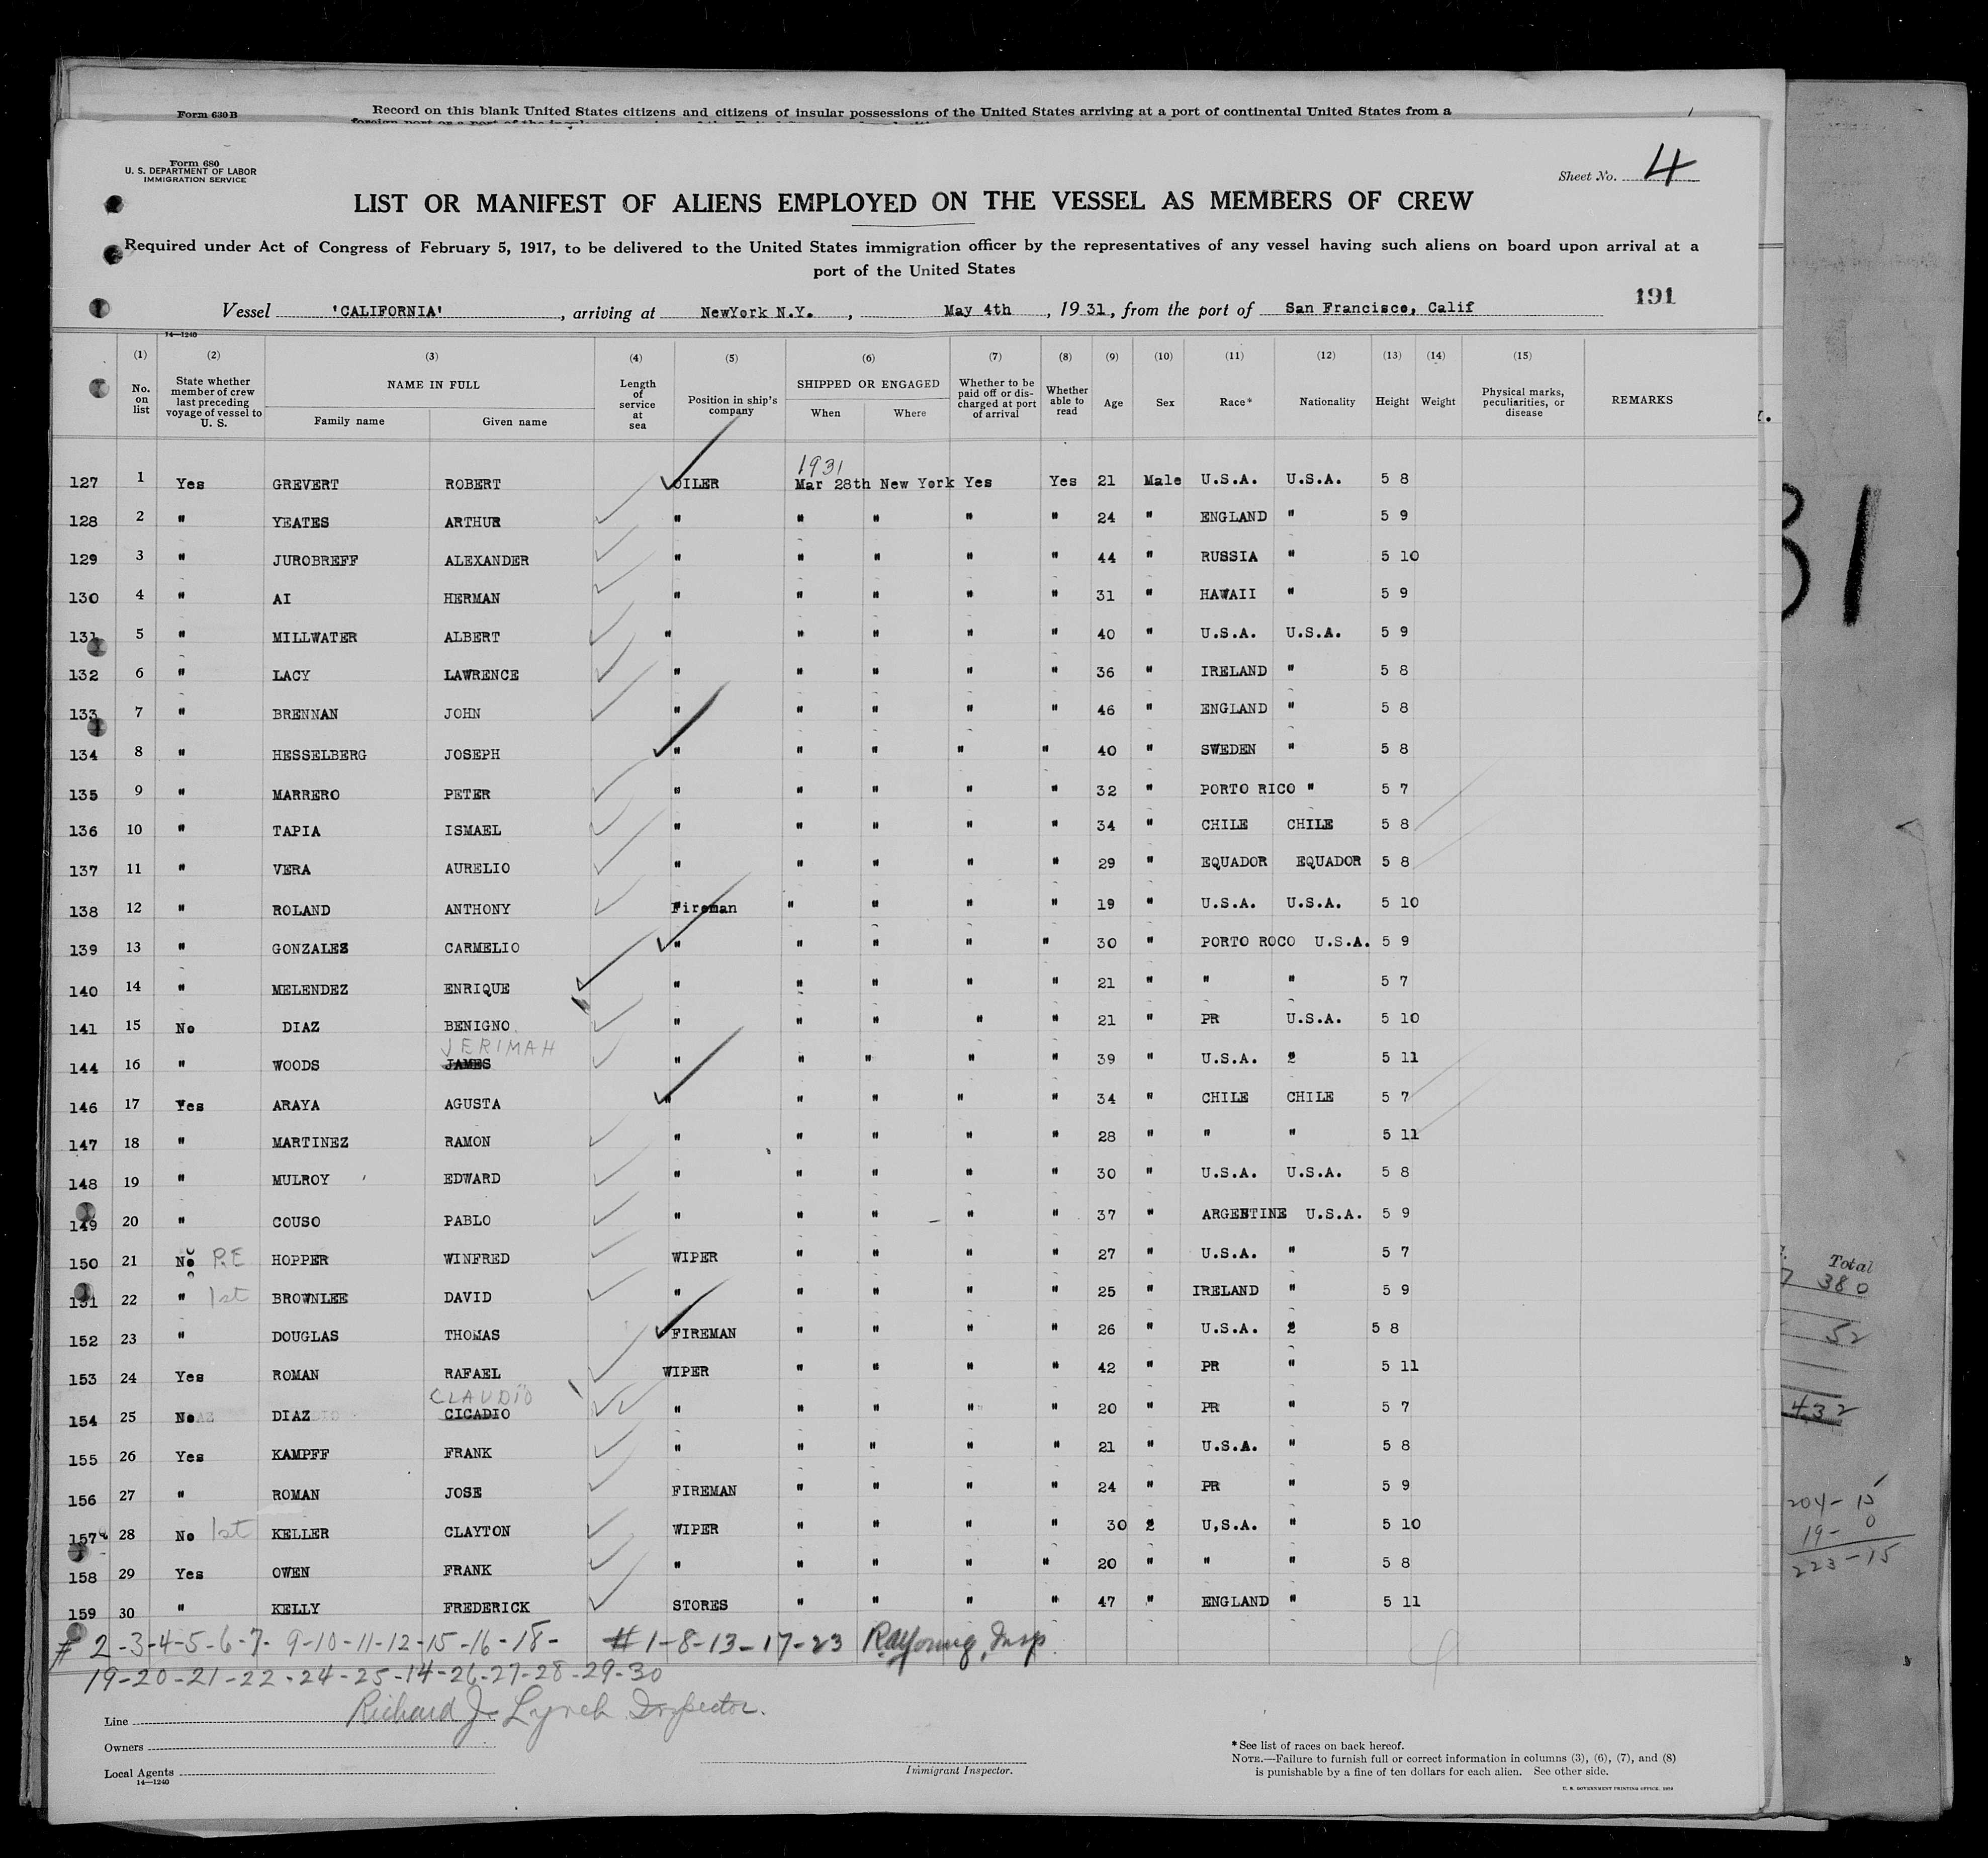 Form 630 B
Record on this blank United States citizens and citizens of insular possessions of the United States arriving at a port of continental United States from a
Form 680
U. S. DEPARTMENT OF LABOR
IMMIGRATION SERVICE
Sheet No. 4
LIST OR MANIFEST OF ALIENS EMPLOYED ON THE VESSEL AS MEMBERS OF CREW
Required under Act of Congress of February 5, 1917, to be delivered to the United States immigration officer by the representatives of any vessel having such aliens on board upon arrival at a
port of the United States
191
Vessel 'CALIFORNIA', arriving at NewYork N.Y., May 4th, 1931, from the port of San Francisco, Calif
14—1240
(1) (2) (3) (4) (5) (6) (7) (8) (9) (10) (11) (12) (13) (14) (15)
No. on list State whether member of crew last preceding voyage of vessel to U. S. NAME IN FULL Length of service at sea Position in ship's company SHIPPED OR ENGAGED Whether to be paid off or discharged at port of arrival Whether able to read Age Sex Race* Nationality Height Weight Physical marks, peculiarities, or disease REMARKS
Family name Given name When Where
1931
127 1 Yes GREVERT ROBERT OILER Mar 28th New York Yes Yes 21 Male U.S.A. U.S.A. 5 8
128 2 " YEATES ARTHUR " " " " " 24 " ENGLAND " 5 9
129 3 " JUROBREFF ALEXANDER " " " " " 44 " RUSSIA " 5 10
130 4 " AI HERMAN " " " " " 31 " HAWAII " 5 9
131 5 " MILLWATER ALBERT " " " " " 40 " U.S.A. U.S.A. 5 9
132 6 " LACY LAWRENCE " " " " " 36 " IRELAND " 5 8
133 7 " BRENNAN JOHN " " " " " 46 " ENGLAND " 5 8
134 8 " HESSELBERG JOSEPH " " " " " 40 " SWEDEN " 5 8
135 9 " MARRERO PETER " " " " " 32 " PORTO RICO " 5 7
136 10 " TAPIA ISMAEL " " " " " 34 " CHILE CHILE 5 8
137 11 " VERA AURELIO " " " " " 29 " EQUADOR EQUADOR 5 8
138 12 " ROLAND ANTHONY Fireman " " " " 19 " U.S.A. U.S.A. 5 10
139 13 " GONZALES CARMELIO " " " " " 30 " PORTO ROCO U.S.A. 5 9
140 14 " MELENDEZ ENRIQUE " " " " " 21 " " " 5 7
141 15 No DIAZ BENIGNO " " " " " 21 " PR U.S.A. 5 10
JERIMAH
144 16 " WOODS JAMES " " " " " 39 " U.S.A. 2 5 11
146 17 Yes ARAYA AGUSTA " " " " " 34 " CHILE CHILE 5 7
147 18 " MARTINEZ RAMON " " " " " 28 " " " 5 11
148 19 " MULROY EDWARD " " " " " 30 " U.S.A. U.S.A. 5 8
149 20 " COUSO PABLO " " " " " 37 " ARGENTINE U.S.A. 5 9
150 21 No P.E HOPPER WINFRED WIPER " " " " 27 " U.S.A. " 5 7
151 22 " 1st BROWNLEE DAVID " " " " " 25 " IRELAND " 5 9
152 23 " DOUGLAS THOMAS FIREMAN " " " " 26 " U.S.A. 2 5 8
153 24 Yes ROMAN RAFAEL WIPER " " " " 42 " PR " 5 11
CLAUDIO
154 25 No DIAZ CICADIO " " " " " 20 " PR " 5 7
155 26 Yes KAMPFF FRANK " " " " " 21 " U.S.A. " 5 8
156 27 " ROMAN JOSE FIREMAN " " " " 24 " PR " 5 9
157 28 No 1st KELLER CLAYTON WIPER " " " " 30 2 U,S.A. " 5 10
158 29 Yes OWEN FRANK " " " " " 20 " " " 5 8
159 30 " KELLY FREDERICK STORES " " " " 47 " ENGLAND " 5 11
# 2-3-4-5-6-7- 9-10-11-12-15-16-18- # 1-8-13-17-23 Insp.
19-20-21-22-24-25-14-26-27-28-29-30
Richard J. Lynch Inspector.
Line
Owners
Local Agents
14—1240
Immigrant Inspector.
* See list of races on back hereof.
NOTE.—Failure to furnish full or correct information in columns (3), (6), (7), and (8)
is punishable by a fine of ten dollars for each alien. See other side.
U. S. GOVERNMENT PRINTING OFFICE
31
Total
380
52
432
204-15
19-0
223-15